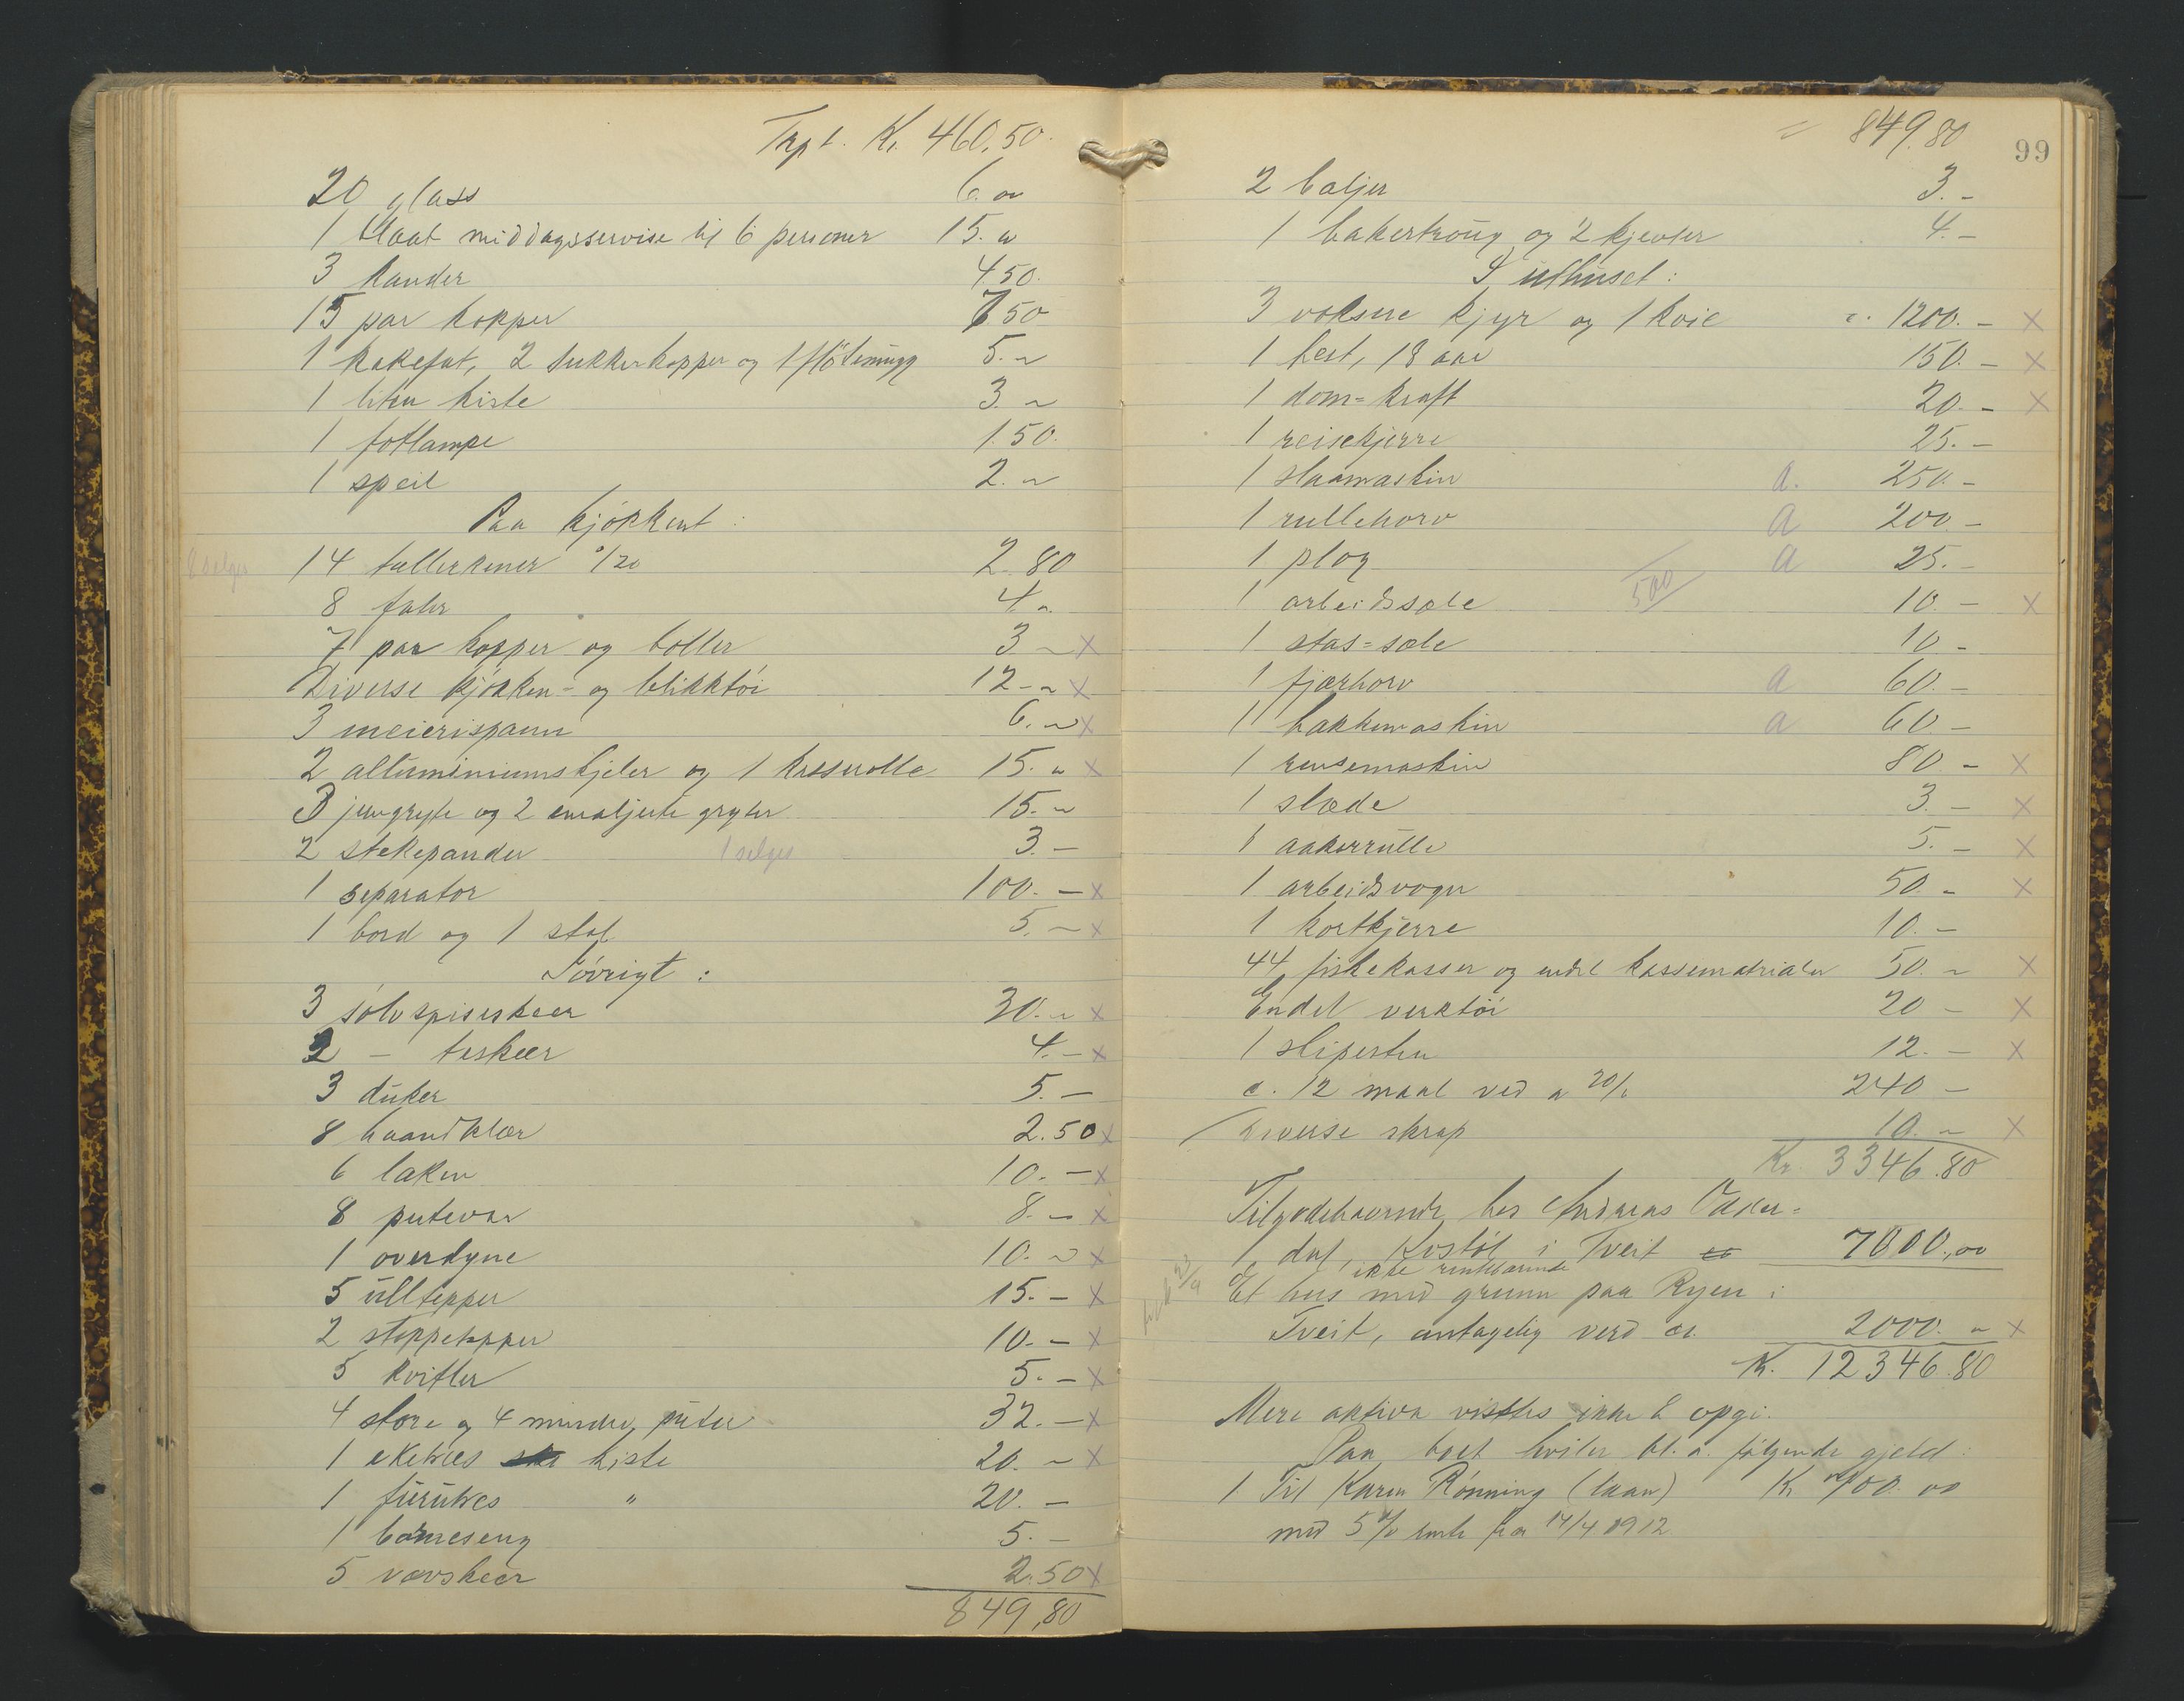 Trpt. Kr. 460,50.
20 glass 6. "
1 blaat middagsservise til 6 personer 15. "
3 kander 4.50.
15 par kopper 7.50
1 kakefat, 2 sukkerkopper og 1 flötemugg 5. "
1 liten kiste 3. "
1 fotlampe 1.50.
1 speil 2. "
Paa kjökkent:
selges 14 tallerkener º/20 2.80
8 fater 4. "
7 par kopper og boller 3 " x
Diverse kjökken- og blikktöi 12 - " x
3 meierispann 6. " x
2 alluminiumskjeler og 1 kasserolle 15. " x
3 jerngryte og 2 emaljerte gryter 15. "
2 stekepander 1 selges 3. -
1 separator 100. - x
1 bord og 1 stol 5. - x
Iövrigt:
3 sölvspiseskeer 30. " x
2 - teskeer 4. - x
3 duker 5. -
8 haandklær 2.50 x
6 laken 10. - x
8 putevar 8. - x
1 overdyne 10. " x
5 ulltepper 15. - x
2 stoppetepper 10. - x
5 kvitler 5. - x
4 store og 4 mindre puter 32. - x
1 eketræs kiste 20. " x
1 furutræs " 20. -
1 barneseng 5. -
5 vævskeer 2.50 x
849,80
99
= 849.80
2 baljer 3. -
1 bakertroug og 2 kjevler 4. -
I uthuset:
3 voksne kjyr og 1 kvie c. 1200. - x
1 hest, 18 aar 150. - x
1 dom-kraft 20. - x
1 reisekjerre 25. -
1 slaamaskin a. 250. -
1 rulleharv a 200 -
1 plog a 25. -
500
1 arbeidssæle 10. - x
1 stas-sæle 10 -
1 fjærharv a 60. -
1 hakkemaskin a 60 -
1 rensemaskin 80 - x
1 slæde 3. - x
1 aakerrulle 5. - x
1 arbeidsvogn 50. - x
1 kortkjerre 10. -
44 fiskekasser og endel kassematrialer 50. " x
Endel verktöi 20 - x
1 slipesten 12. - x
c. 12 maal ved a 20/ 240 -
Diverse skrap 10. " x
Kr. 3346.80
Tilgodehavende hos Andreas Odder-
dal, Kostöl i Tveit 7000,00
ikke rentebærende
Et hus med grunn paa Ryen i
Tveit, antagelig verd ca. 2000. " x
Kr. 12346.80
Mere aktiva visstes ikke å opgi.
Paa boet hviler bl. a. følgende gjeld:
1 Til Karen Rönning (laan) Kr 700. 00
med 5 % rente fra 14/4 1912